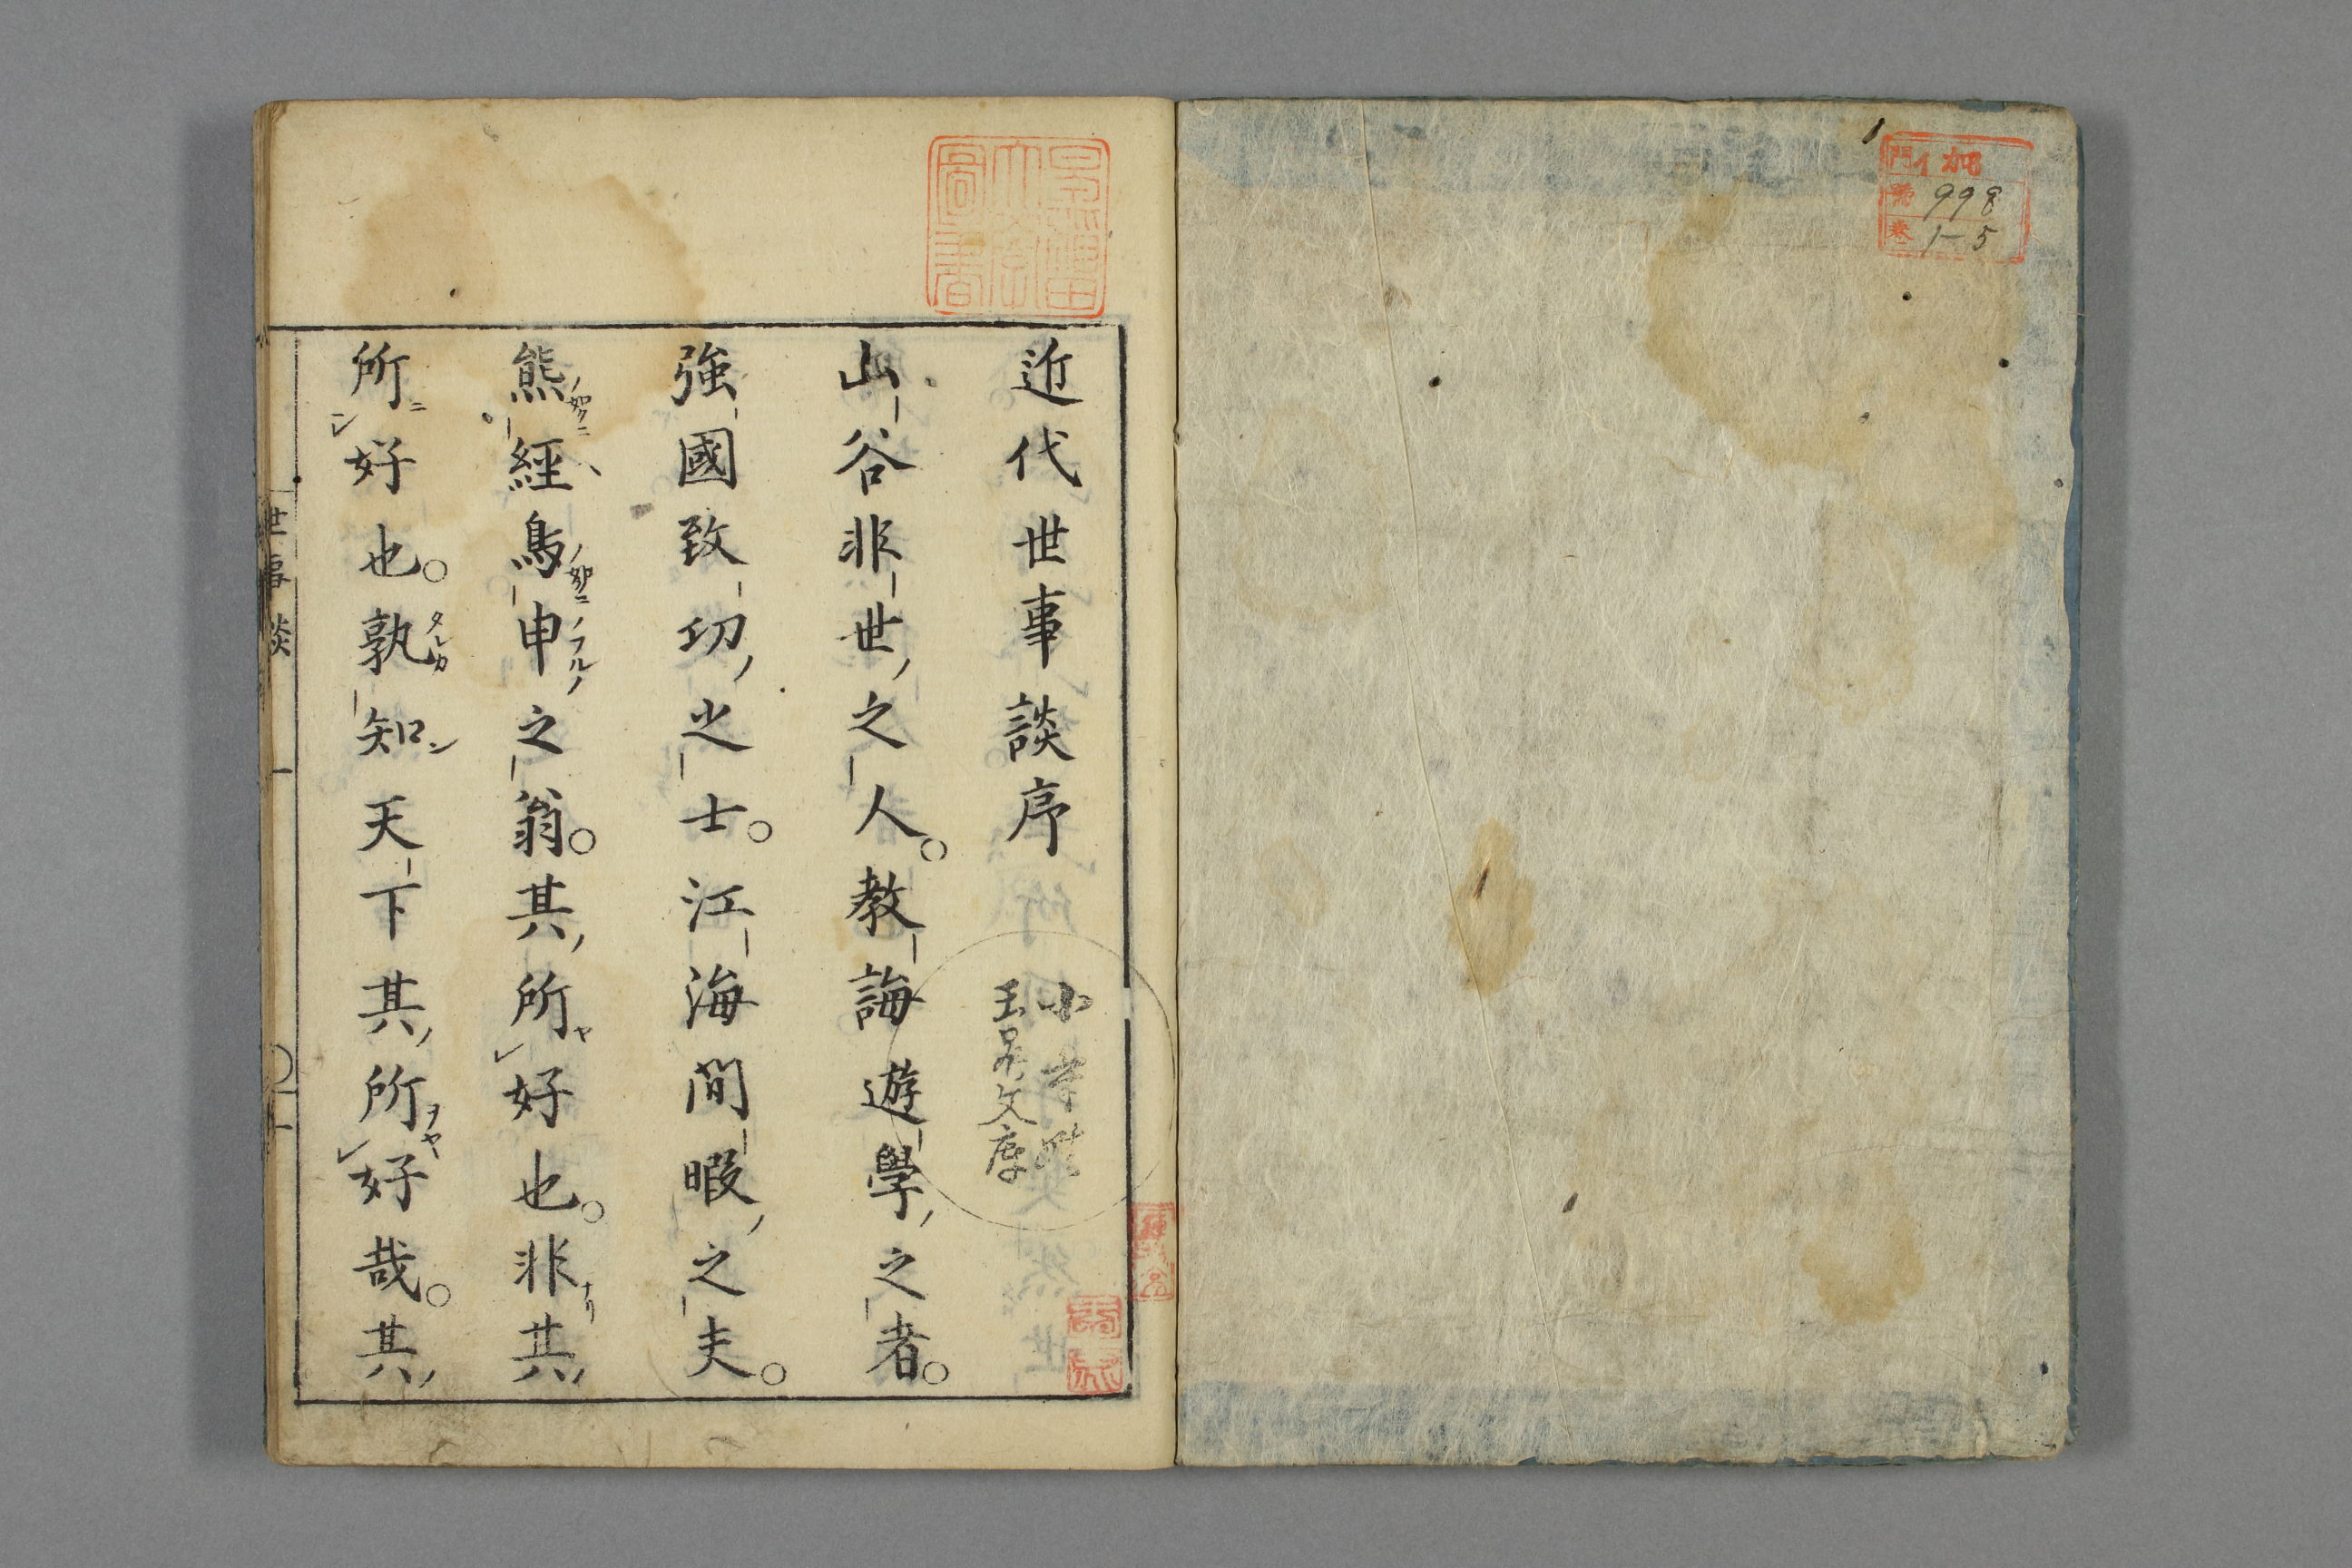 門 イ加
號 998
巻 1-5
早稲田大學圖書
近代世事談序
玉晁文庫
山谷非世之人。教誨遊學之者。
強國致功之士。江海間暇之夫。
熊經鳥申之翁。其所好也。非其
所好也。孰知天下其所好哉。其
世事談 一